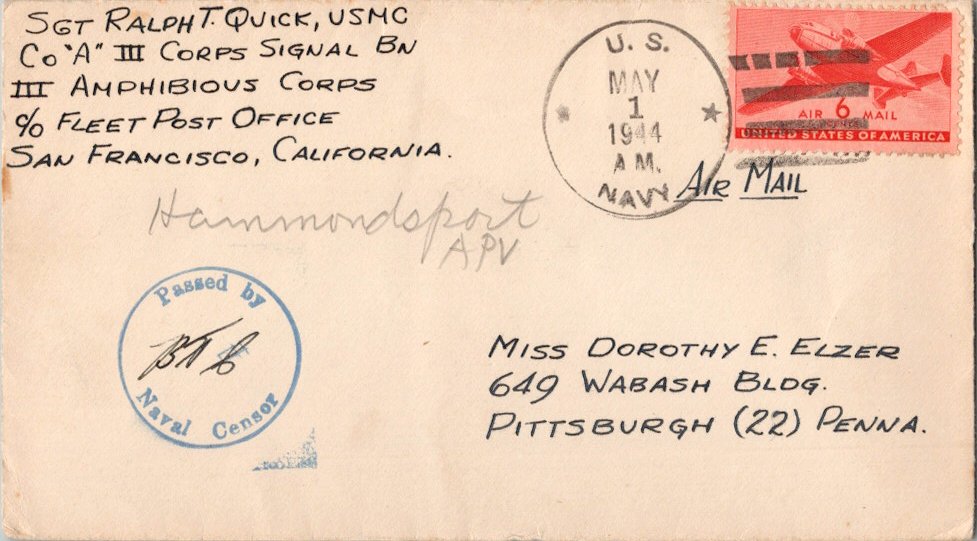 SGT RALPH T. QUICK, USMC
CO "A" III CORPS SIGNAL BN
III AMPHIBIOUS CORPS
c/o FLEET POST OFFICE
SAN FRANCISCO, CALIFORNIA.
U. S.
MAY
1
1944
A.M.
NAVY
AIR 6 MAIL
UNITED STATES OF AMERICA
AIR MAIL
Hammondsport
APV
Passed by
Naval Censor
MISS DOROTHY E. ELZER
649 WABASH BLDG.
PITTSBURGH (22) PENNA.